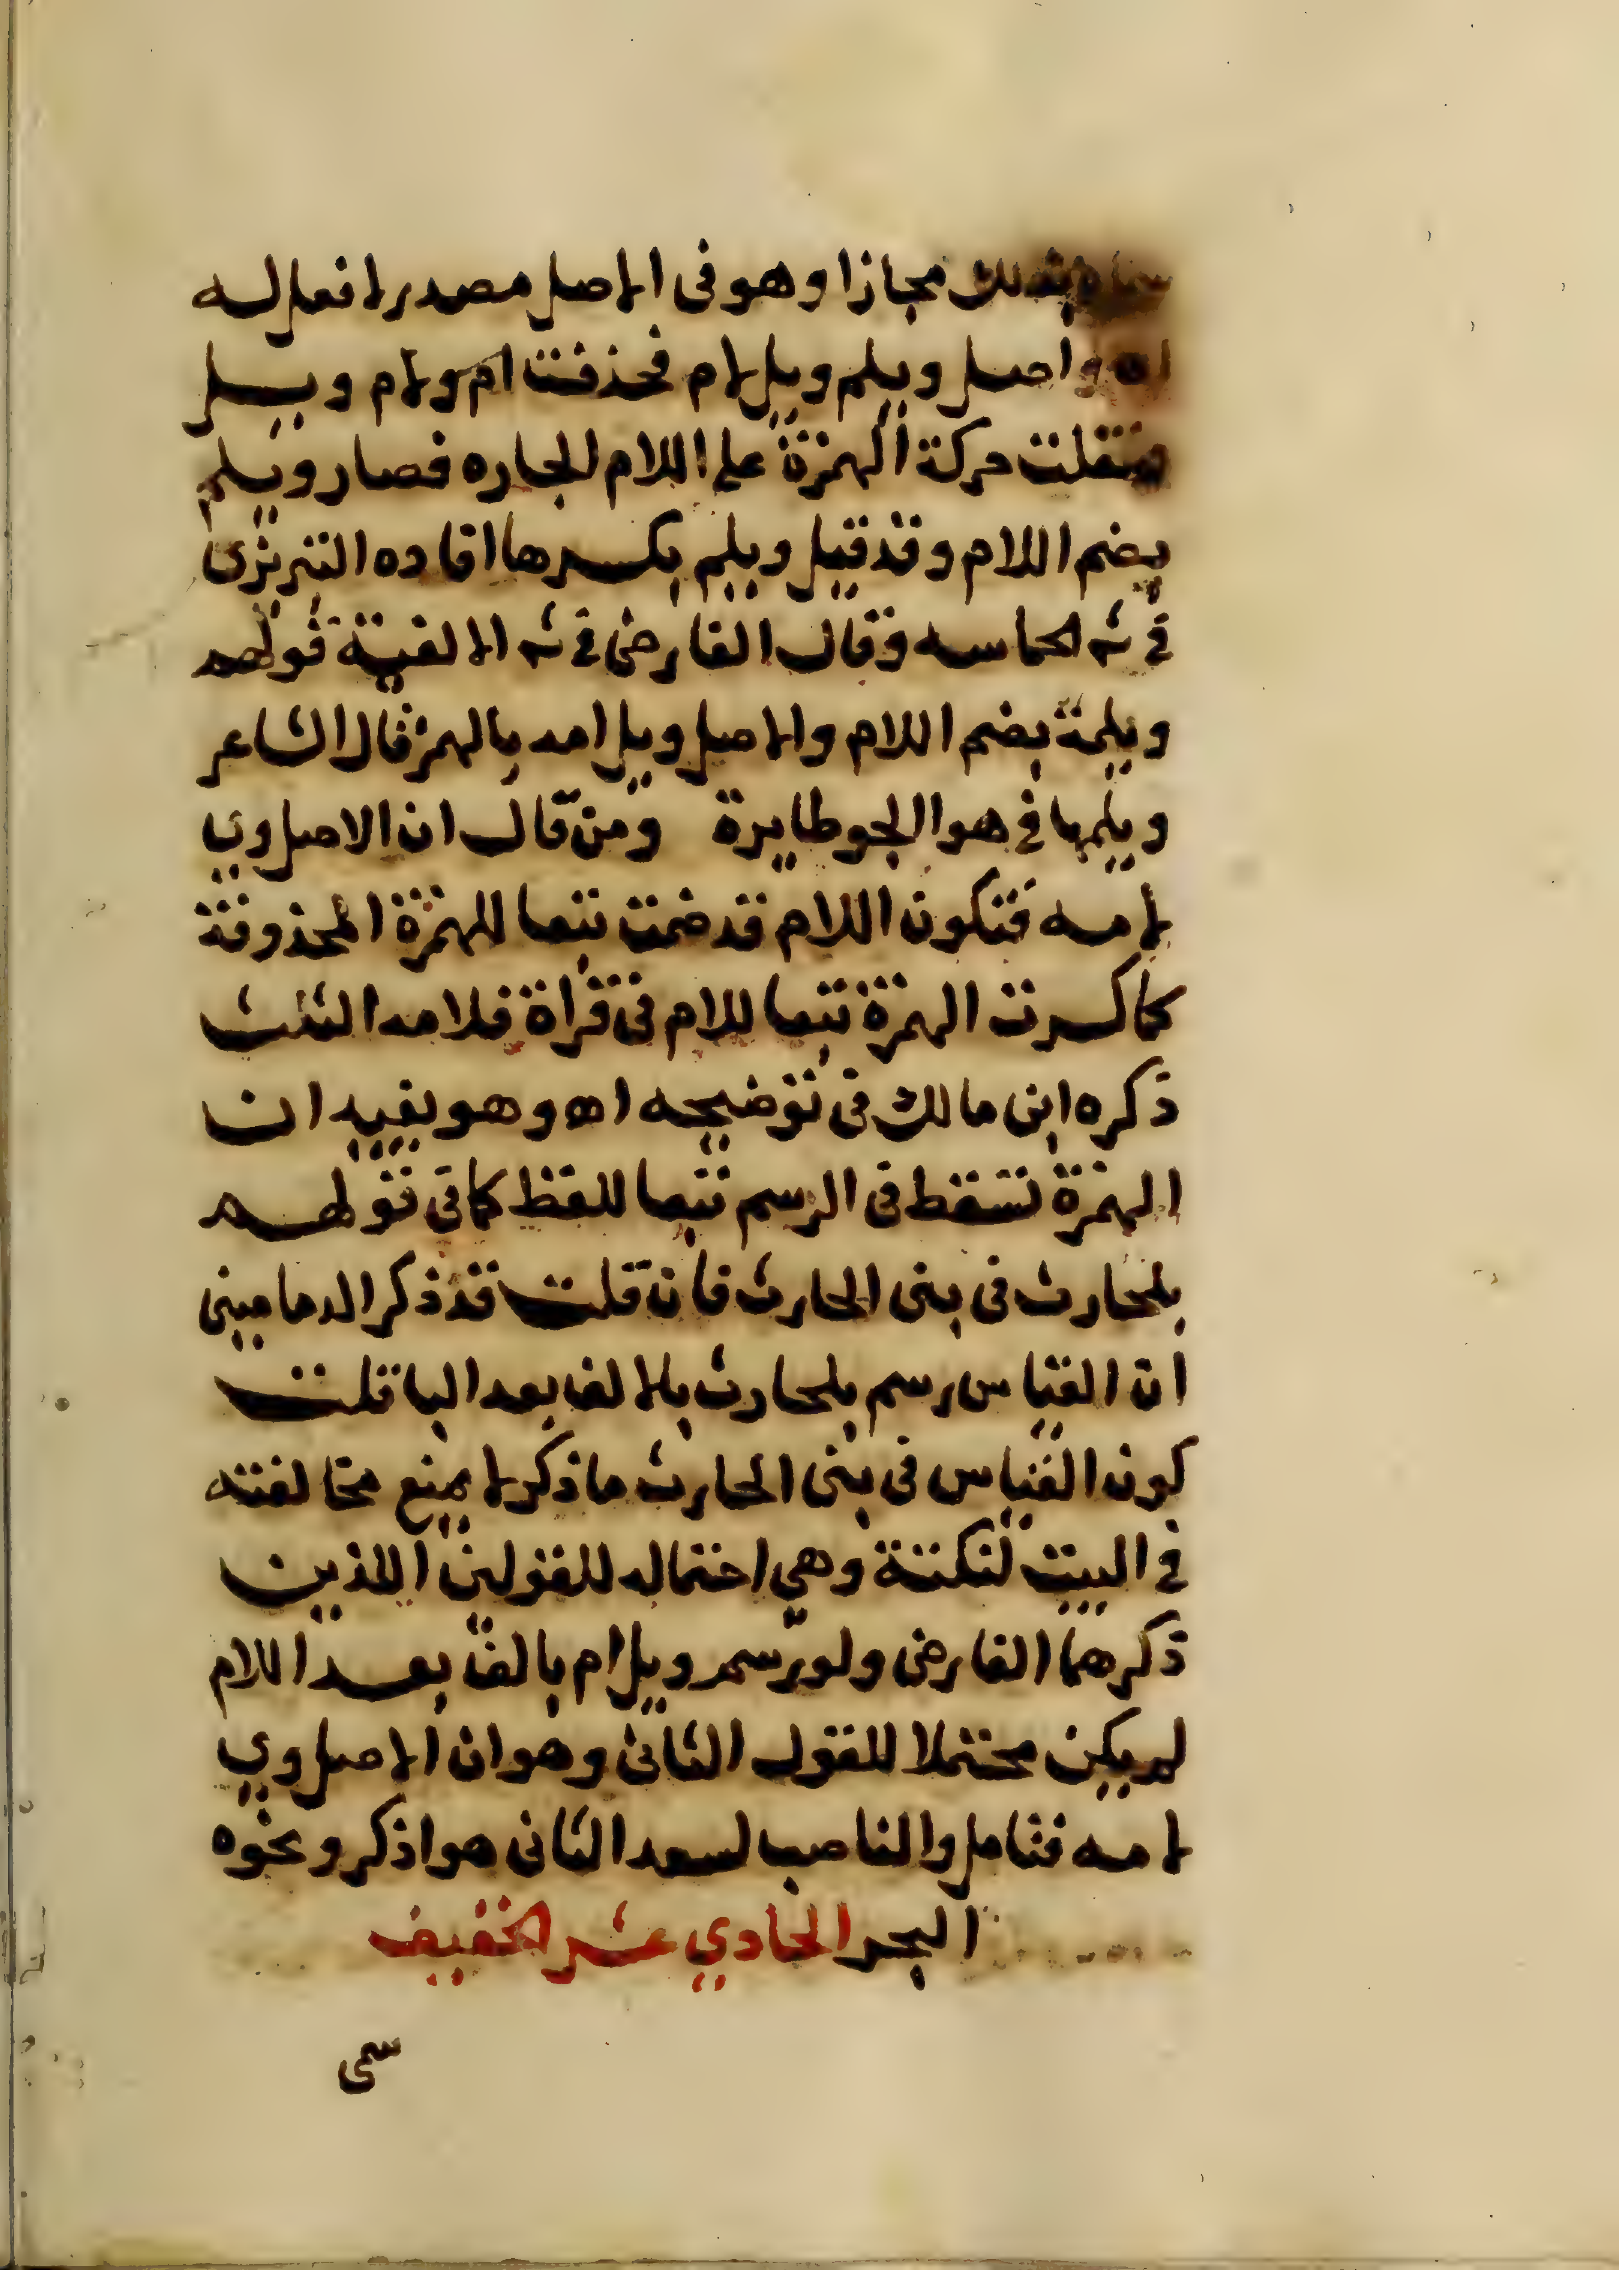 سماه بذلك مجازا وهو فى الاصل مصدر لا فعل له
اه واصل ويلم ويل لام فحذفت ام ولام ويل
ونقلت حركة الهمزة على اللام الجاره فصار ويلم
بضم اللام وقد قيل ويلم بكسرها افاده التبريزى
في ش الحماسه وقال الفارضى في ش الالفية قولهم
ويلمة بضم اللام والاصل ويل امه بالهمز قال الشاعر
ويلمها في هوا الجو طايرة ومن قال ان الاصل وي
لامه فتكون اللام قد ضمت تبعا للهمزة المحذوفة
كما كسرت الهمزة تبعا للام فى قراة فلامه الثلث
ذكره ابن مالك فى توضيحه اه وهو يفيد ان
الهمزة تسقط فى الرسم تبعا للفظ كما فى قولهم
بلحارث فى بنى الحارث فان قلت قد ذكر الدمامينى
ان القياس رسم بلحارث بلا الف بعد البا قلت
كون القياس فى بنى الحارث ما ذكر لا يمنع مخالفته
في البيت لنكتة وهي احتماله للقولين اللذين
ذكرهما الفارضى ولو رسم ويل ام بالف بعد اللام
لم يكن محتملا للقول الثانى وهو ان الاصل وي
لامه فتامل والناصب لسعد الثانى هو اذكر ونحوه
البحر الحادي عشر الخفيف
سمى